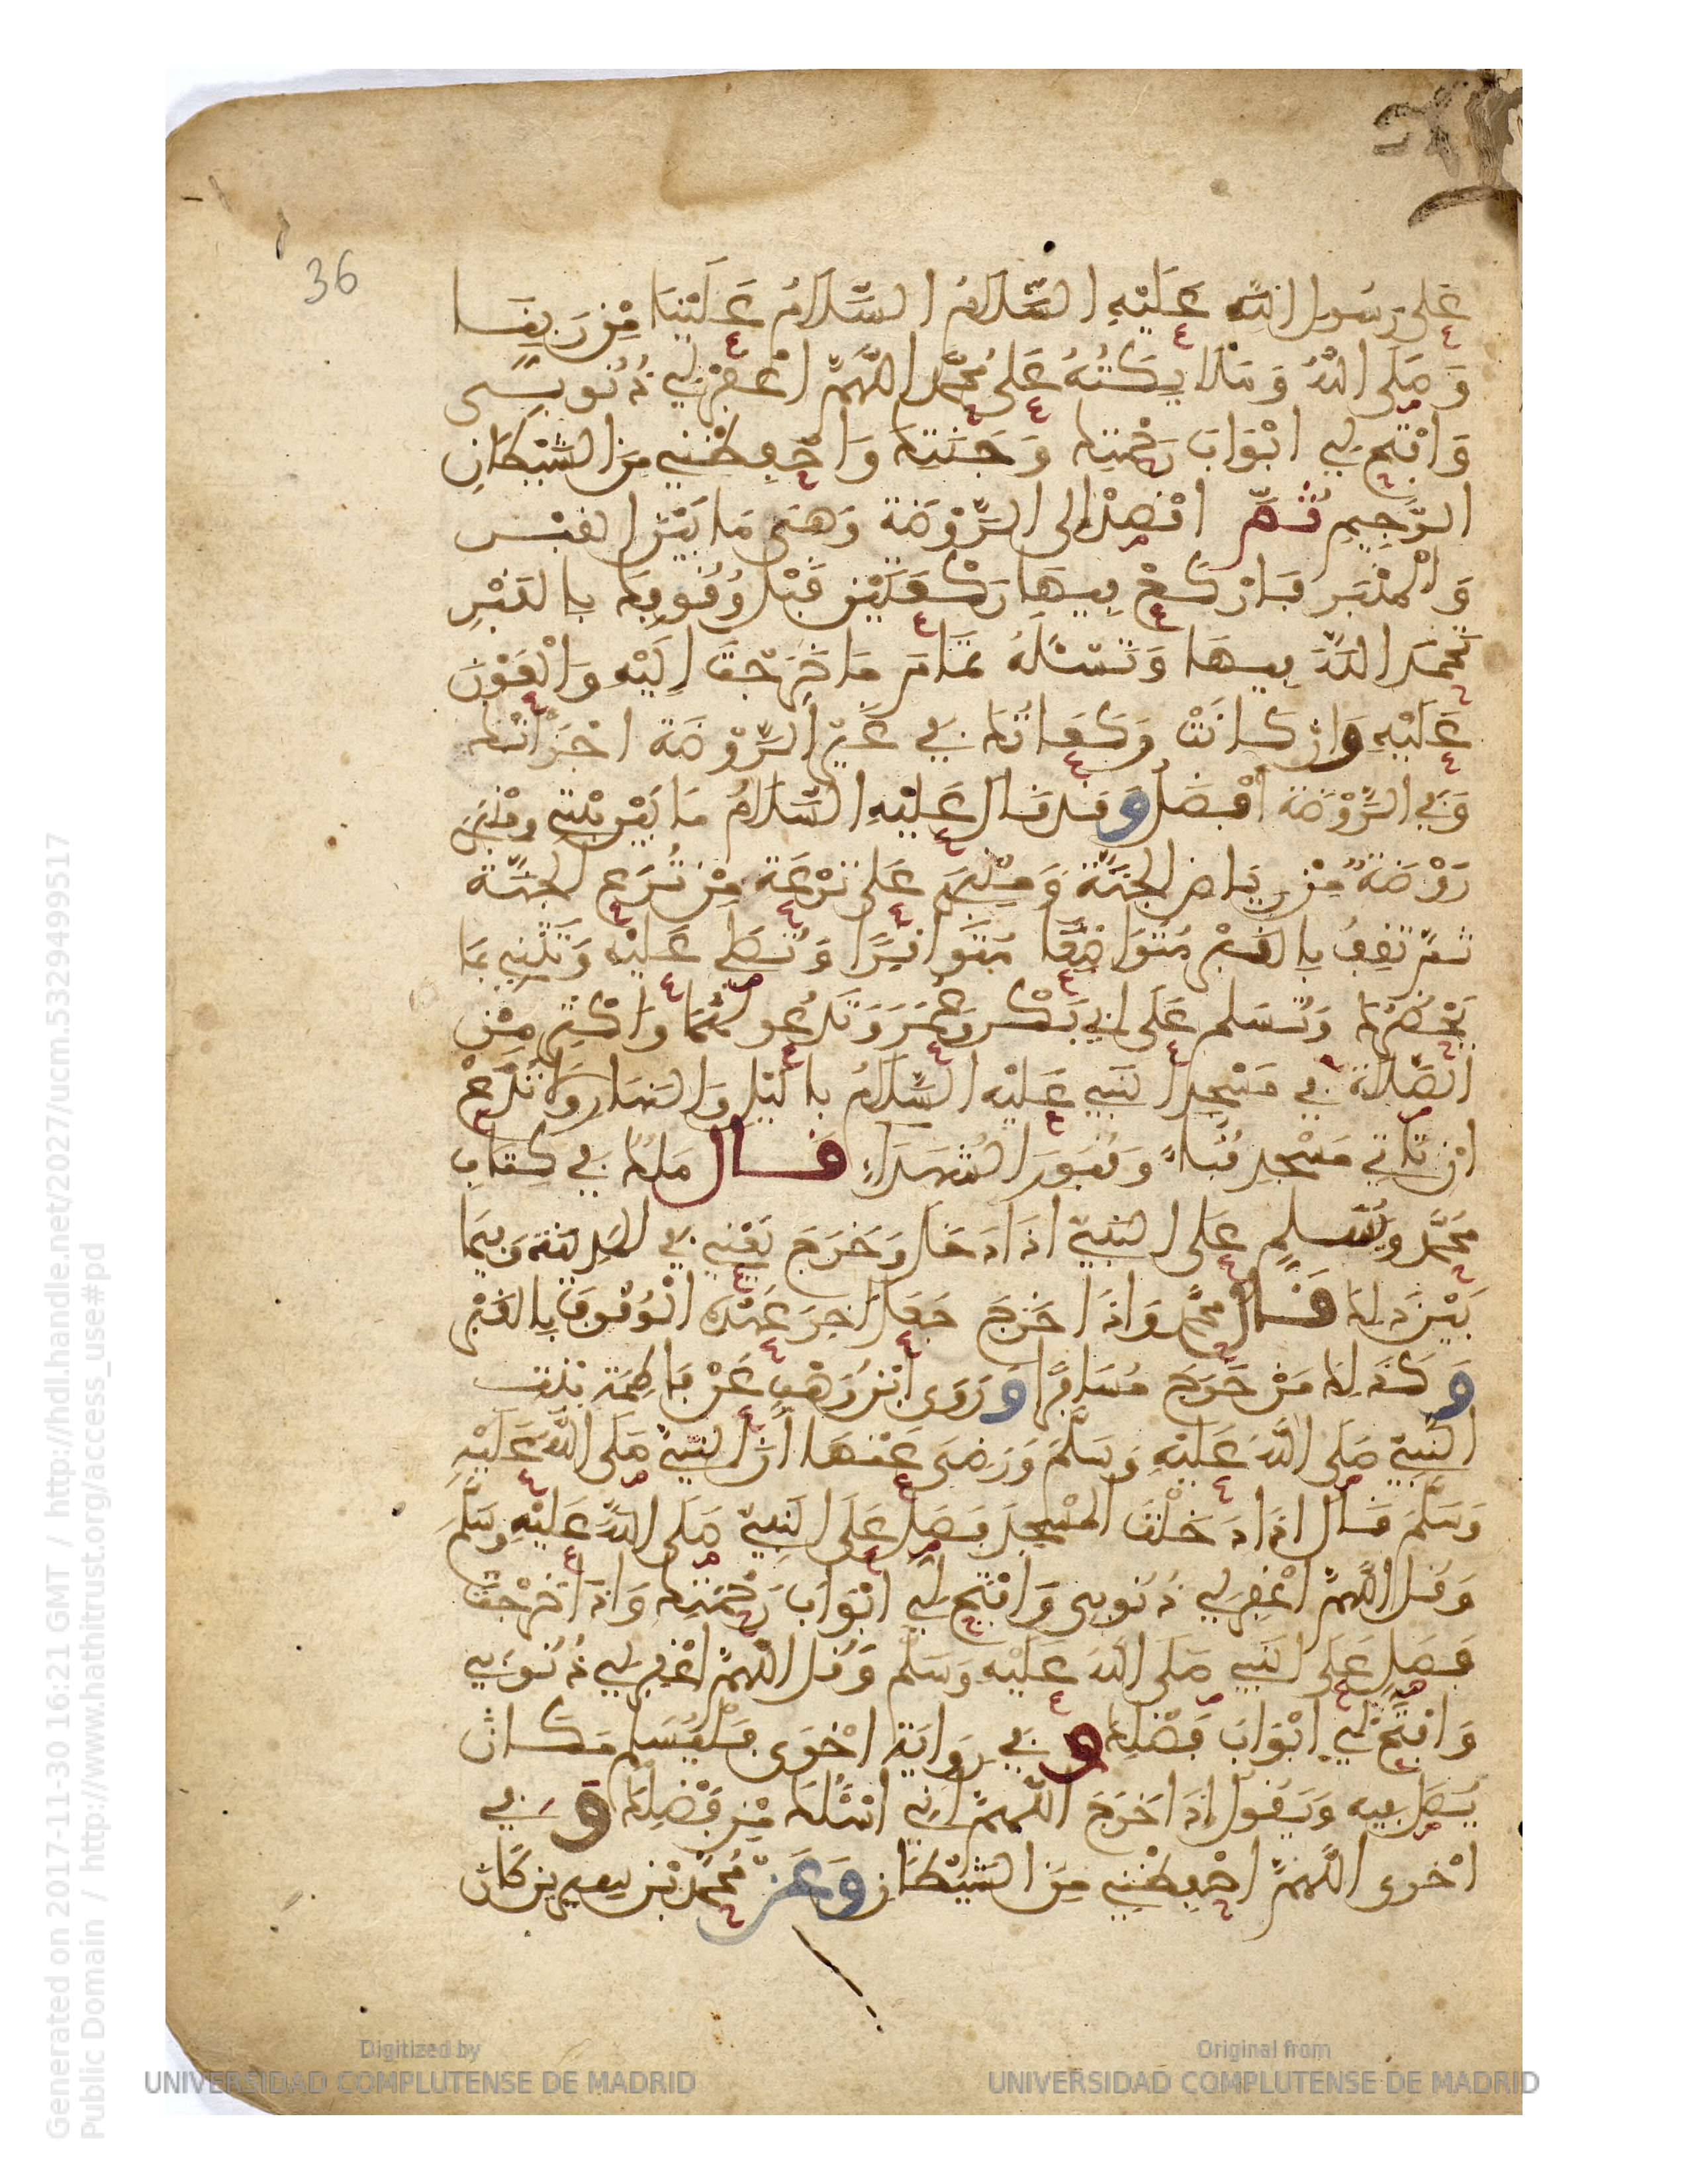 36
عَلَى رَسُولِ اللَّهِ عَلَيْهِ السَّلَامُ السَّلَامُ عَلَيْنَا مِن رَبِّنَا
وَصَلَى اللَّهُ وَمَلَايِكَتُهُ عَلَى مُحَمَّد اللَّهُمَّ اغْفِرْ لِي ذُنُوبِي
وَافْتَحْ لِي ابْوَابَ رَحْمَتِكَ وَجَنَّتِكَ وَاحْفِظْنِي مِنَ الشَّيْطَانِ
الرَّجِيمِ ثُمَّ اقْصِدْ إلى الرَّوْضَة وَهِيَ مَا بَيْنَ القَبْر
وَالْمنْبَر فَارْكَعْ فِيهَا رَكْعَتَيْنِ قَبْلَ وُقُوفِكَ بِالقَبْرِ
تَحْمَد اللَّهَ فِيهَا وَتَسْئَلُهُ تَمَامَ مَا خَرَجْتَ إلَيْه وَالْعَوْنَ
عَلَيْهِ وَإن كَانَتْ رَكَعَاتُكَ فِي غَيْرِ الرَّوْضَة اجْزَأتْكَ
وَفِي الرَّوْضَة أفْضَل وَقد قَال عَلَيْهِ السَّلَامُ مَا بَيْنَ بَيْتِي وَمِنْبَرِي
رَوْضَةٌ مِنْ رِيَاضِ الجَنَّة وَمِنْبَرِي عَلى تُرْعَة مِنْ تُرَعِ الجَنَّة
ثمَّ تَقِفُ بِالقَبْرِ مُتَوَاضِعًا مُتَوَاقِرًا وَتُصَلِّي عَلَيْه وَتُثْنِي بِمَا
يَحْضُرُكَ وَتُسَلم عَلَى أبِي بَكْر وَعُمَرَ وَتَدْعُو لَهُمَا وَاكْثِر مِنَ
الصَّلَاة فِي مَسْجِد النَّبِي عَلَيْه السَّلَامُ بالليْلِ وَالنهَار وَلَا تَدَعْ
انْ تَاتِيَ مَسْجِد قُبَاءٍ وَقُبُورَ الشُّهَدَاءِ قَال مَلك فِي كِتَابِ
مُحَمَّد وَيُسَلِّم عَلَى النَّبِيّ اذَا دَخَل وَخَرَجَ يَعْنِي فِي المَدِينَة وَفِيمَا
بَيْنَ ذلِكَ قَال محَمد وَاذَا خَرَجَ جَعَل آخِرَ عَهْدِه الْوُقُوفَ بِالقَبْر
وَكَذَلِكَ مَنْ خَرَجَ مُسَافِرًا وَرَوَى ابْنُ وَهْبٍ عَنْ فَاطِمَة بِنْت
النَّبِيِّ صَلى اللَّهُ عَلَيْهِ وَسَلَّمَ وَرَضِيَ عَنْهَا أنَّ النَّبِيَّ صَلى اللَّهُ عَلَيْهِ
وَسَلَّمَ قَال اذَا دَخَلْتَ المَسْجِدَ فَصَلِّ عَلَى النَّبِيِّ صَلى اللَّهُ عَلَيْهِ وسَلَّمَ
وَقُل اللَّهُمَّ اغْفِر لِي ذُنُوبِي وَافْتَح لِي ابْوَابَ رَحْمَتِكَ وَاذَا خَرَجْتَ
فَصَلِّ عَلَى النَّبِي صَلَى اللَّهُ عَلَيْه وَسَلَّم وَقُل اللَّهُمَّ اغْفِر لِي ذُنُوبِي
وَافْتَحْ لِي ابْوَابَ فَضْلِكَ وَفِي رِوَايَة اخْرَى فَلْيُسَلم مَكَانَ
يُصَلِّ فِيه وَيَقُول إذَا خَرَجَ اللَّهُمَّ إنِّي اسْئَلُكَ مِن فَضْلِكَ وَفِي
اخْرَى اللَّهُمَّ احْفِظْنِي مِنَ الشَّيْطَان وَعَنْ مُحَمَّد بْن سِيرِين كَان